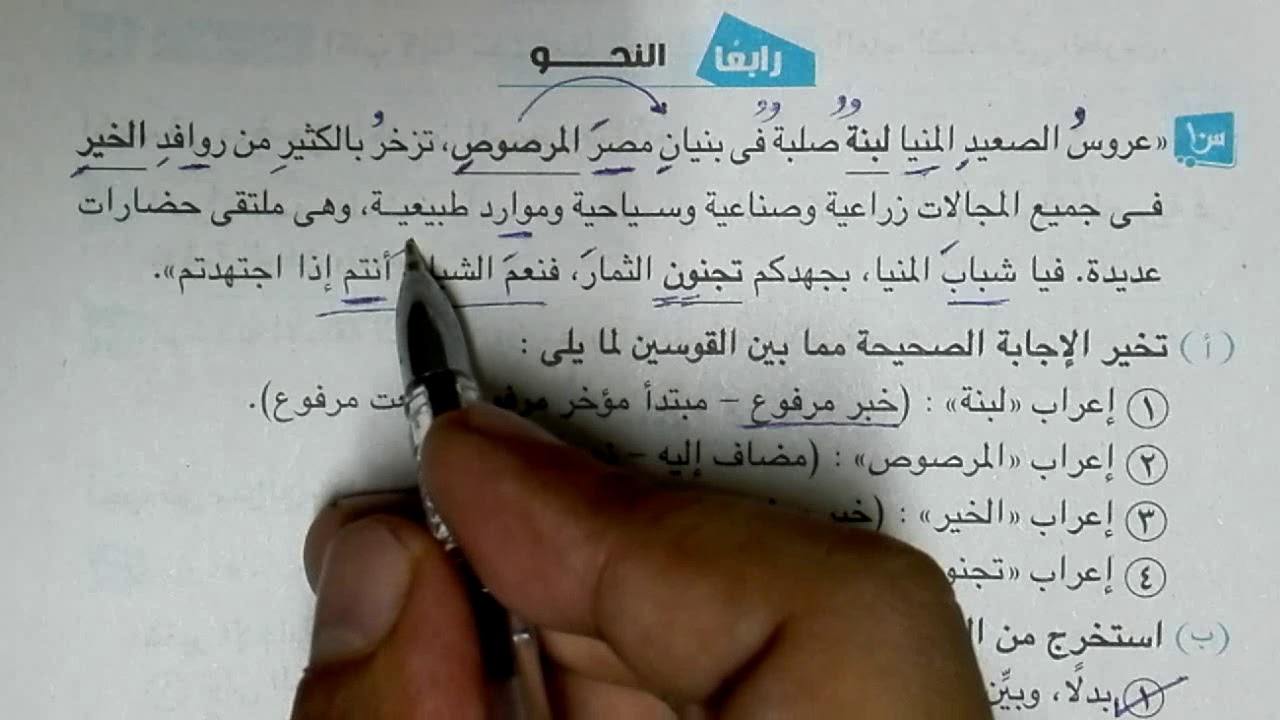 رابعًا
النحـــو
س١٠ «عروسُ الصعيدِ المنيا لبنةٌ صلبةٌ فى بنيانِ مصرَ المرصوصِ، تزخرُ بالكثيرِ من روافدِ الخيرِ
فى جميع المجالات زراعية وصناعية وسياحية وموارد طبيعية، وهى ملتقى حضارات
عديدة. فيا شبابَ المنيا، بجهدكم تجنون الثمارَ، فنعمَ أنتم إذا اجتهدتم».
(أ) تخير الإجابة الصحيحة مما بين القوسين لما يلى :
١ إعراب «لبنة» : (خبر مرفوع – مبتدأ مؤخر مرفوع). 
٢ إعراب «المرصوص» : (مضاف إليه –
٣ إعراب «الخير» :
٤ إعراب
(ب) استخرج من
١ بدلًا، وبيِّن